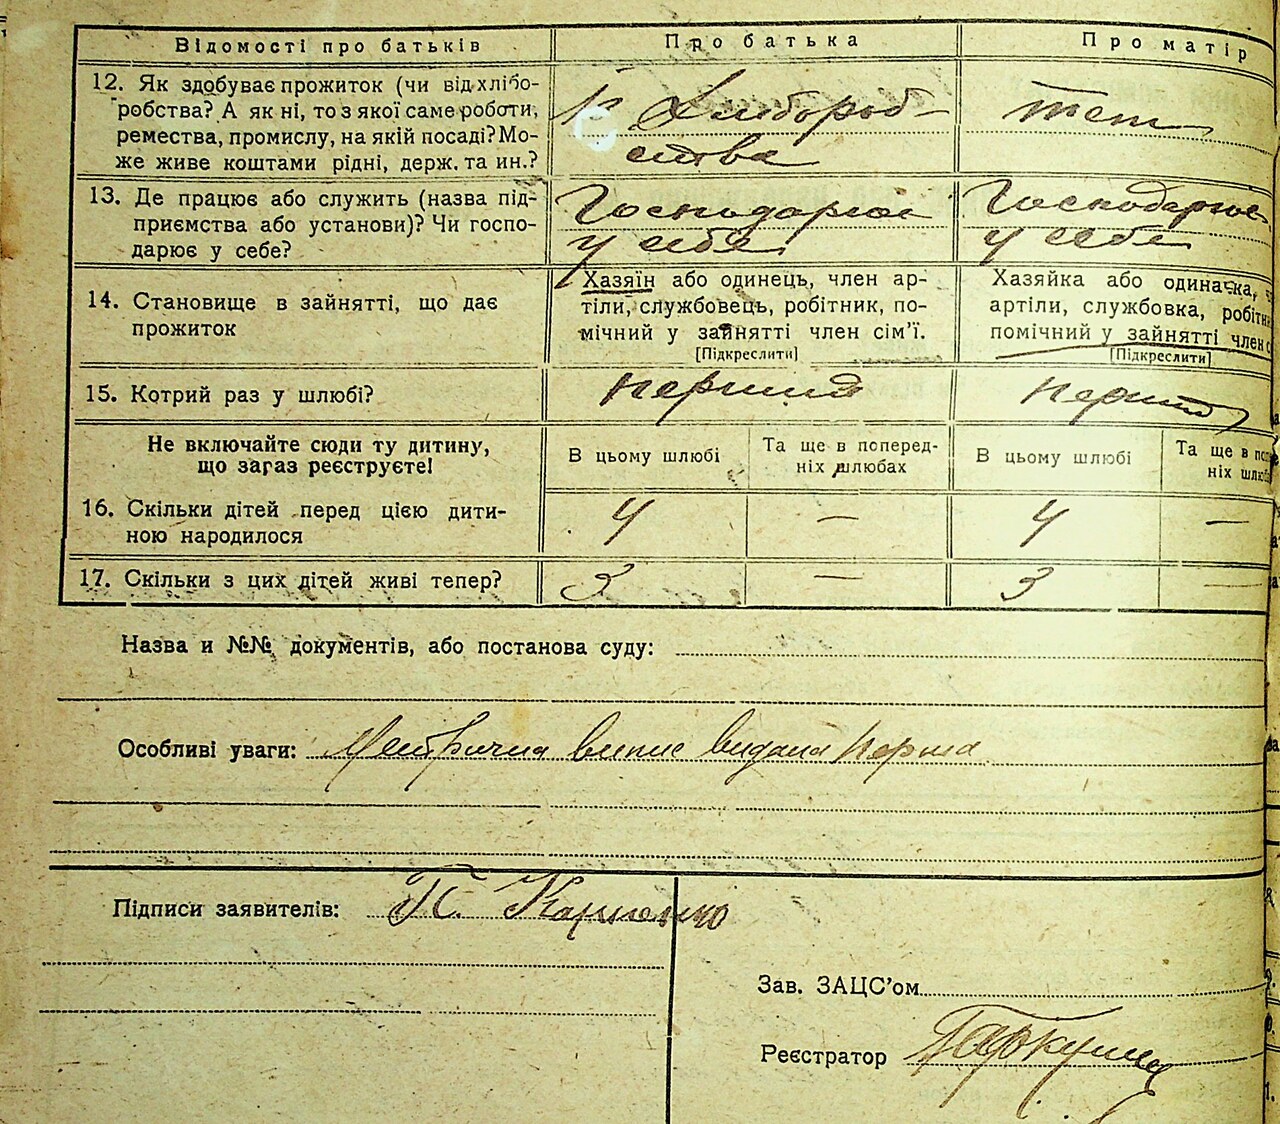 Відомості про батьків
Про батька
Про матір
12. Як здобуває прожиток (чи від хлібо-
робства? А як ні, то з якої саме роботи,
ремества, промислу, на якій посаді? Мо-
же живе коштами рідні, держ. та ин.?
Хлібороб-
ства
теж
13. Де працює або служить (назва під-
приємства або установи)? Чи госпо-
дарює у себе?
Господарює
у себе
Господарює
у себе
14. Становище в зайнятті, що дає
прожиток
Хазяїн або одинець, член ар-
тіли, службовець, робітник, по-
мічний у зайнятті член сім'ї.
[Підкреслити]
Хазяйка або одиначка,
артіли, службовка, робітн
помічний у зайнятті член с
[Підкреслити]
15. Котрий раз у шлюбі?
перший
перший
Не включайте сюди ту дитину,
що зараз реєструєте!
В цьому шлюбі
Та ще в поперед-
ніх шлюбах
В цьому шлюбі
Та ще в попе
ніх шлюб
16. Скільки дітей перед цією дити-
ною народилося
4
—
4
—
17. Скільки з цих дітей живі тепер?
3
—
3
—
Назва и №№ документів, або постанова суду:
Особливі уваги: Метрична випис видана перша
Підписи заявителів: П. Карпенко
Зав. ЗАЦС'ом
Реєстратор